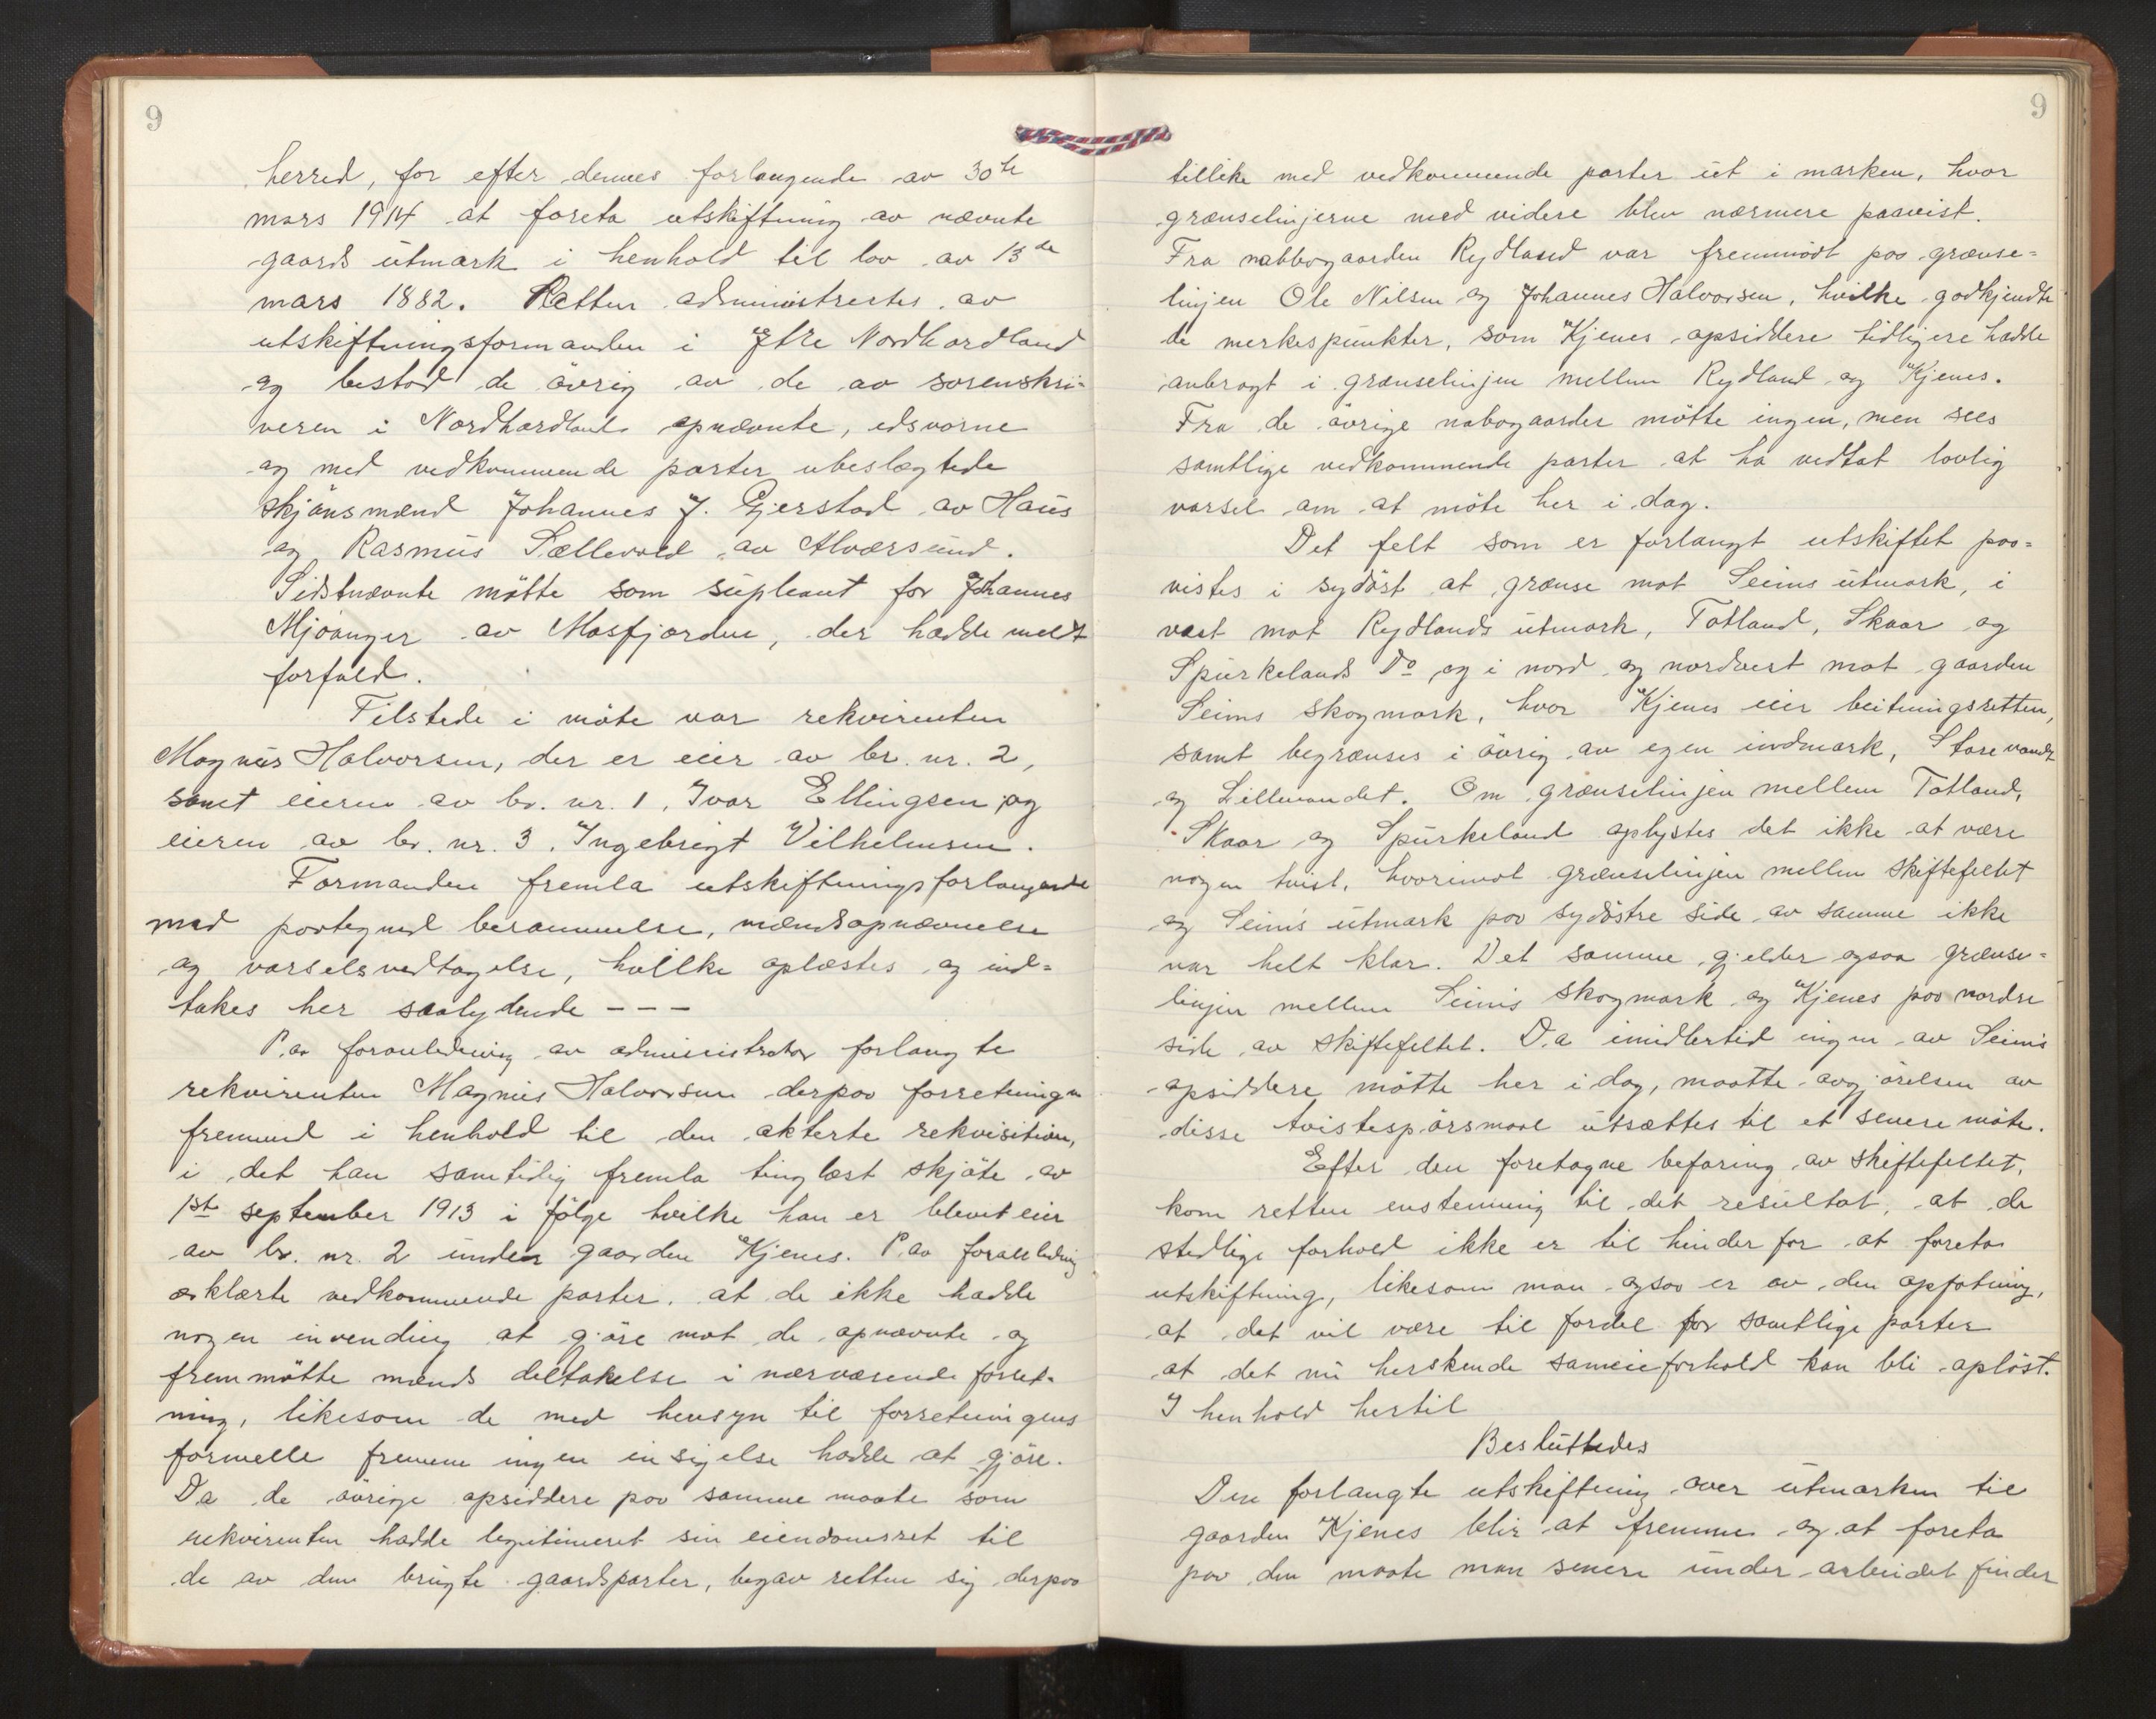 9
herred, for efter dennes forlangende av 30te
mars 1914 at foreta utskiftning av nævnte
gaards utmark i henhold til lov av 13de
mars 1882. Retten administrertes av
utskiftningsformanden i Ytre Nordhordland
og bestod de øvrig av de av sorenskri-
veren i Nordhordland opnævnte, edsvorne
og med vedkommende parter ubeslegtede
skjønsmænd Johannes J. Gjerstad av Haus
og Rasmus Sællevold av Alværsund.
Sidstnævnte møtte som supleant for Johannes
Mjøanger av Masfjorden, der hadde meldt
forfald.
Tilstede i møte var rekvirenten
Magnus Halvorsen, der er eier av br. nr. 2,
samt eieren av br. nr. 1, Ivar Ellingsen og
eieren av br. nr. 3, Ingebrigt Vilhelmsen.
Formanden fremla utskiftningsforlangende
med paategned berammelse, mændsopnævnelse
og varselsvedtagelse, hvilke oplæstes og ind-
takes her saalydende - - -
Paa foranledning av administrator forlangte
rekvirenten Magnus Halvorsen derpaa forretningen
fremmed i henhold til den akterte rekvisition,
i det han samtidig fremla tinglæst skjøte av
1ste september 1913 i følge hvilke han er blevet eier
av br. nr. 2 under gaarden Kjenes. Paa foranledning
erklærte vedkommende parter, at de ikke hadde
nogen invending at gjøre mot de opnævnte og
fremmøtte mænds deltakelse i nærværende forret-
ning, likesom de med hensyn til forretningens
formelle fremme ingen insigelse hadde at gjøre.
Da de øvrige opsiddere paa samme maate som
rekvirenten hadde legitimeret sin eiendomsret til
de av dem brugte gaardsparter, begav retten sig derpaa
9
tillike med vedkommende parter ut i marken, hvor
grænselinjerne med videre blev nærmere paavist.
Fra nabbogaarden Rydland var fremmødt paa grænse-
linjen Ole Nilsen og Johannes Halvorsen, hvilke godkjendte
de merkespunkter, som Kjenes opsiddere tidligere hadde
anbragt i grænselinjen mellem Rydland og Kjenes.
Fra de øvrige nabogaarder møtte ingen, men sees
samtlige vedkommende parter at ha vedtat lovlig
varsel om at møte her i dag.
Det felt som er forlangt utskiftet paa-
vistes i sydøst at grænse mot Seims utmark, i
vest mot Rydlands utmark, Totland, Skaar og
Spurkelands Do og i nord og nordvest mot gaarden
Seims skogmark, hvor Kjenes eier beitningsretten,
samt begrænses i øvrig av egen indmark, Storevandet
og Lillevandet. Om grænselinjen mellem Totland,
Skaar og Spurkeland oplystes det ikke at være
nogen tvist, hvorimot grænselinjen mellem skiftefeltet
og Seims utmark paa sydøstre side av samme ikke
var helt klar. Det samme gjelder ogsaa grænse-
linjen mellem Seims skogmark og Kjenes paa nordre
side av skiftefeltet. Da imidlertid ingen av Seims
opsiddere møtte her i dag, maatte avgjørelsen av
disse tvistespørsmaal utsættes til et senere møte.
Efter den foretagne befaring av skiftefeltet,
kom retten enstemmig til det resultat, at de
stedlige forhold ikke er til hinder for at foreta
utskiftning, likesom man ogsaa er av den opfatning,
at det vil være til fordel for samtlige parter
at det nu herskende sameieforhold kan bli opløst.
I henhold hertil
Besluttedes
Den forlangte utskiftning over utmarken til
gaarden Kjenes blir at fremme og at foreta
paa den maate man senere under arbeidet finder